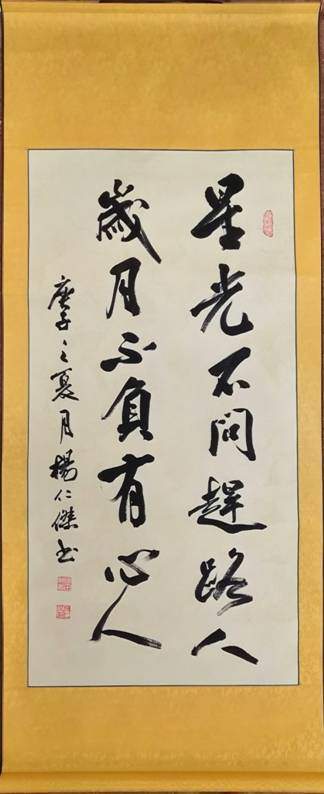 星光不问趕路人
歲月不負有心人
庚子之夏月楊仁傑书